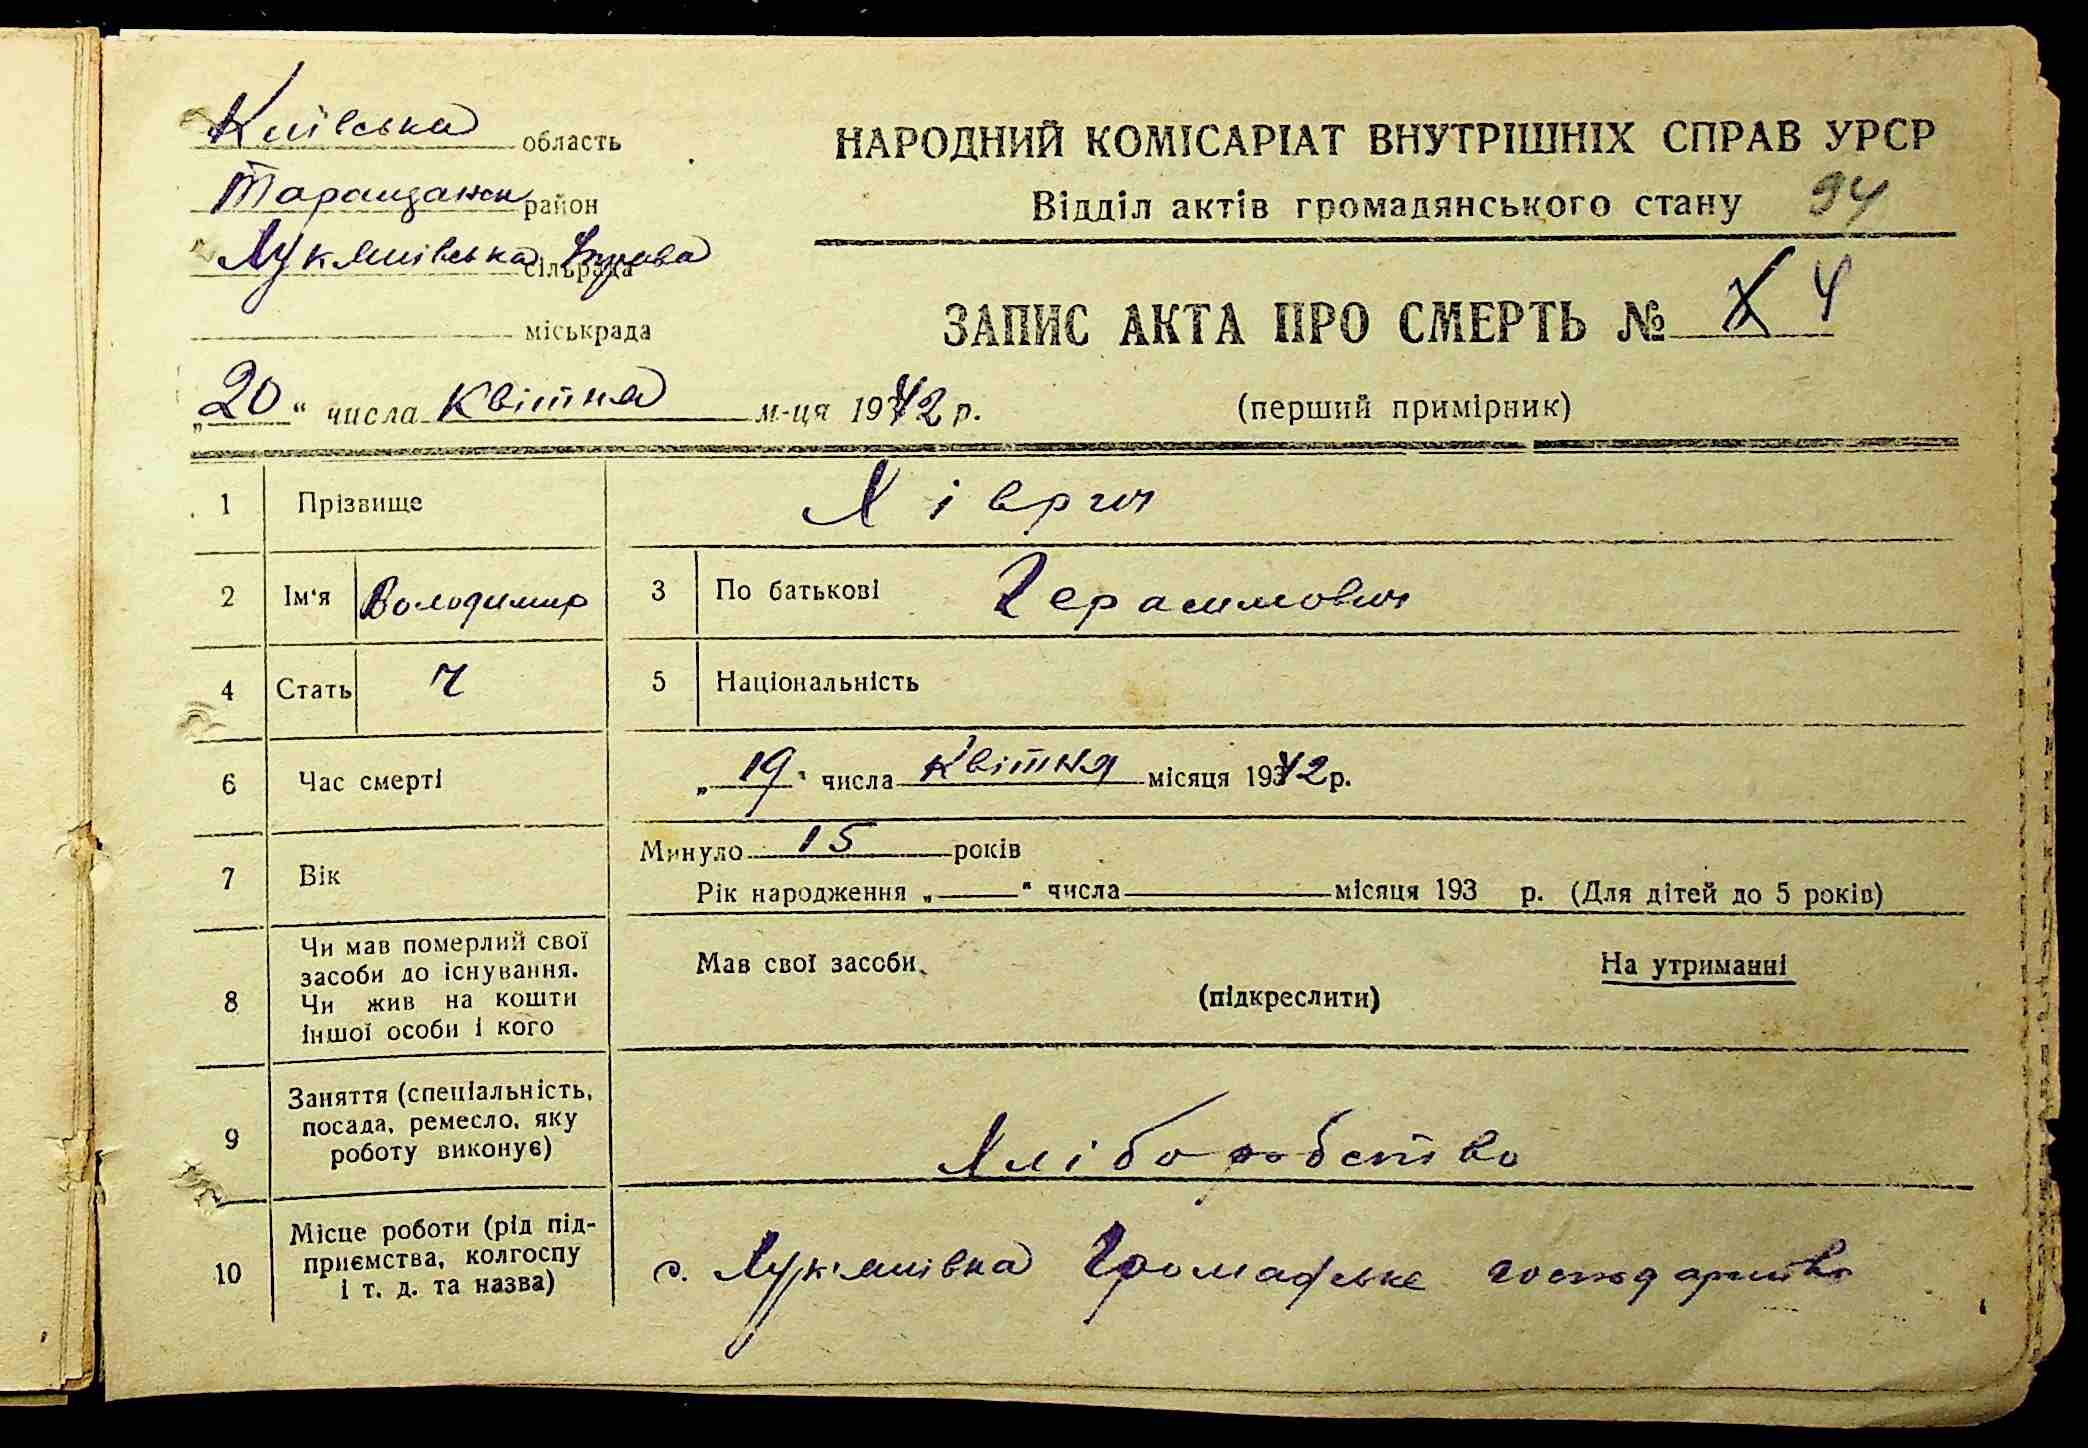 Київська область
Таращанськ район
Лукянівська сільрада Управа
міськрада
„20“ числа квітня м-ця 1942 р.
НАРОДНИЙ КОМІСАРІАТ ВНУТРІШНІХ СПРАВ УРСР
Відділ актів громадянського стану 94
ЗАПИС АКТА ПРО СМЕРТЬ № 4
(перший примірник)
1 Прізвище Хіврич
2 Ім'я Володимир 3 По батькові Герасимович
4 Стать ч 5 Національність
6 Час смерті „19“ числа квітня місяця 1942 р.
7 Вік Минуло 15 років
Рік народження „ “ числа місяця 193 р. (Для дітей до 5 років)
8 Чи мав померлий свої засоби до існування. Чи жив на кошти іншої особи і кого Мав свої засоби (підкреслити) На утриманні
9 Заняття (спеціальність, посада, ремесло, яку роботу виконує) Хліборобство
10 Місце роботи (рід підприємства, колгоспу і т. д. та назва) с. Лук'янівка Громадське господарство